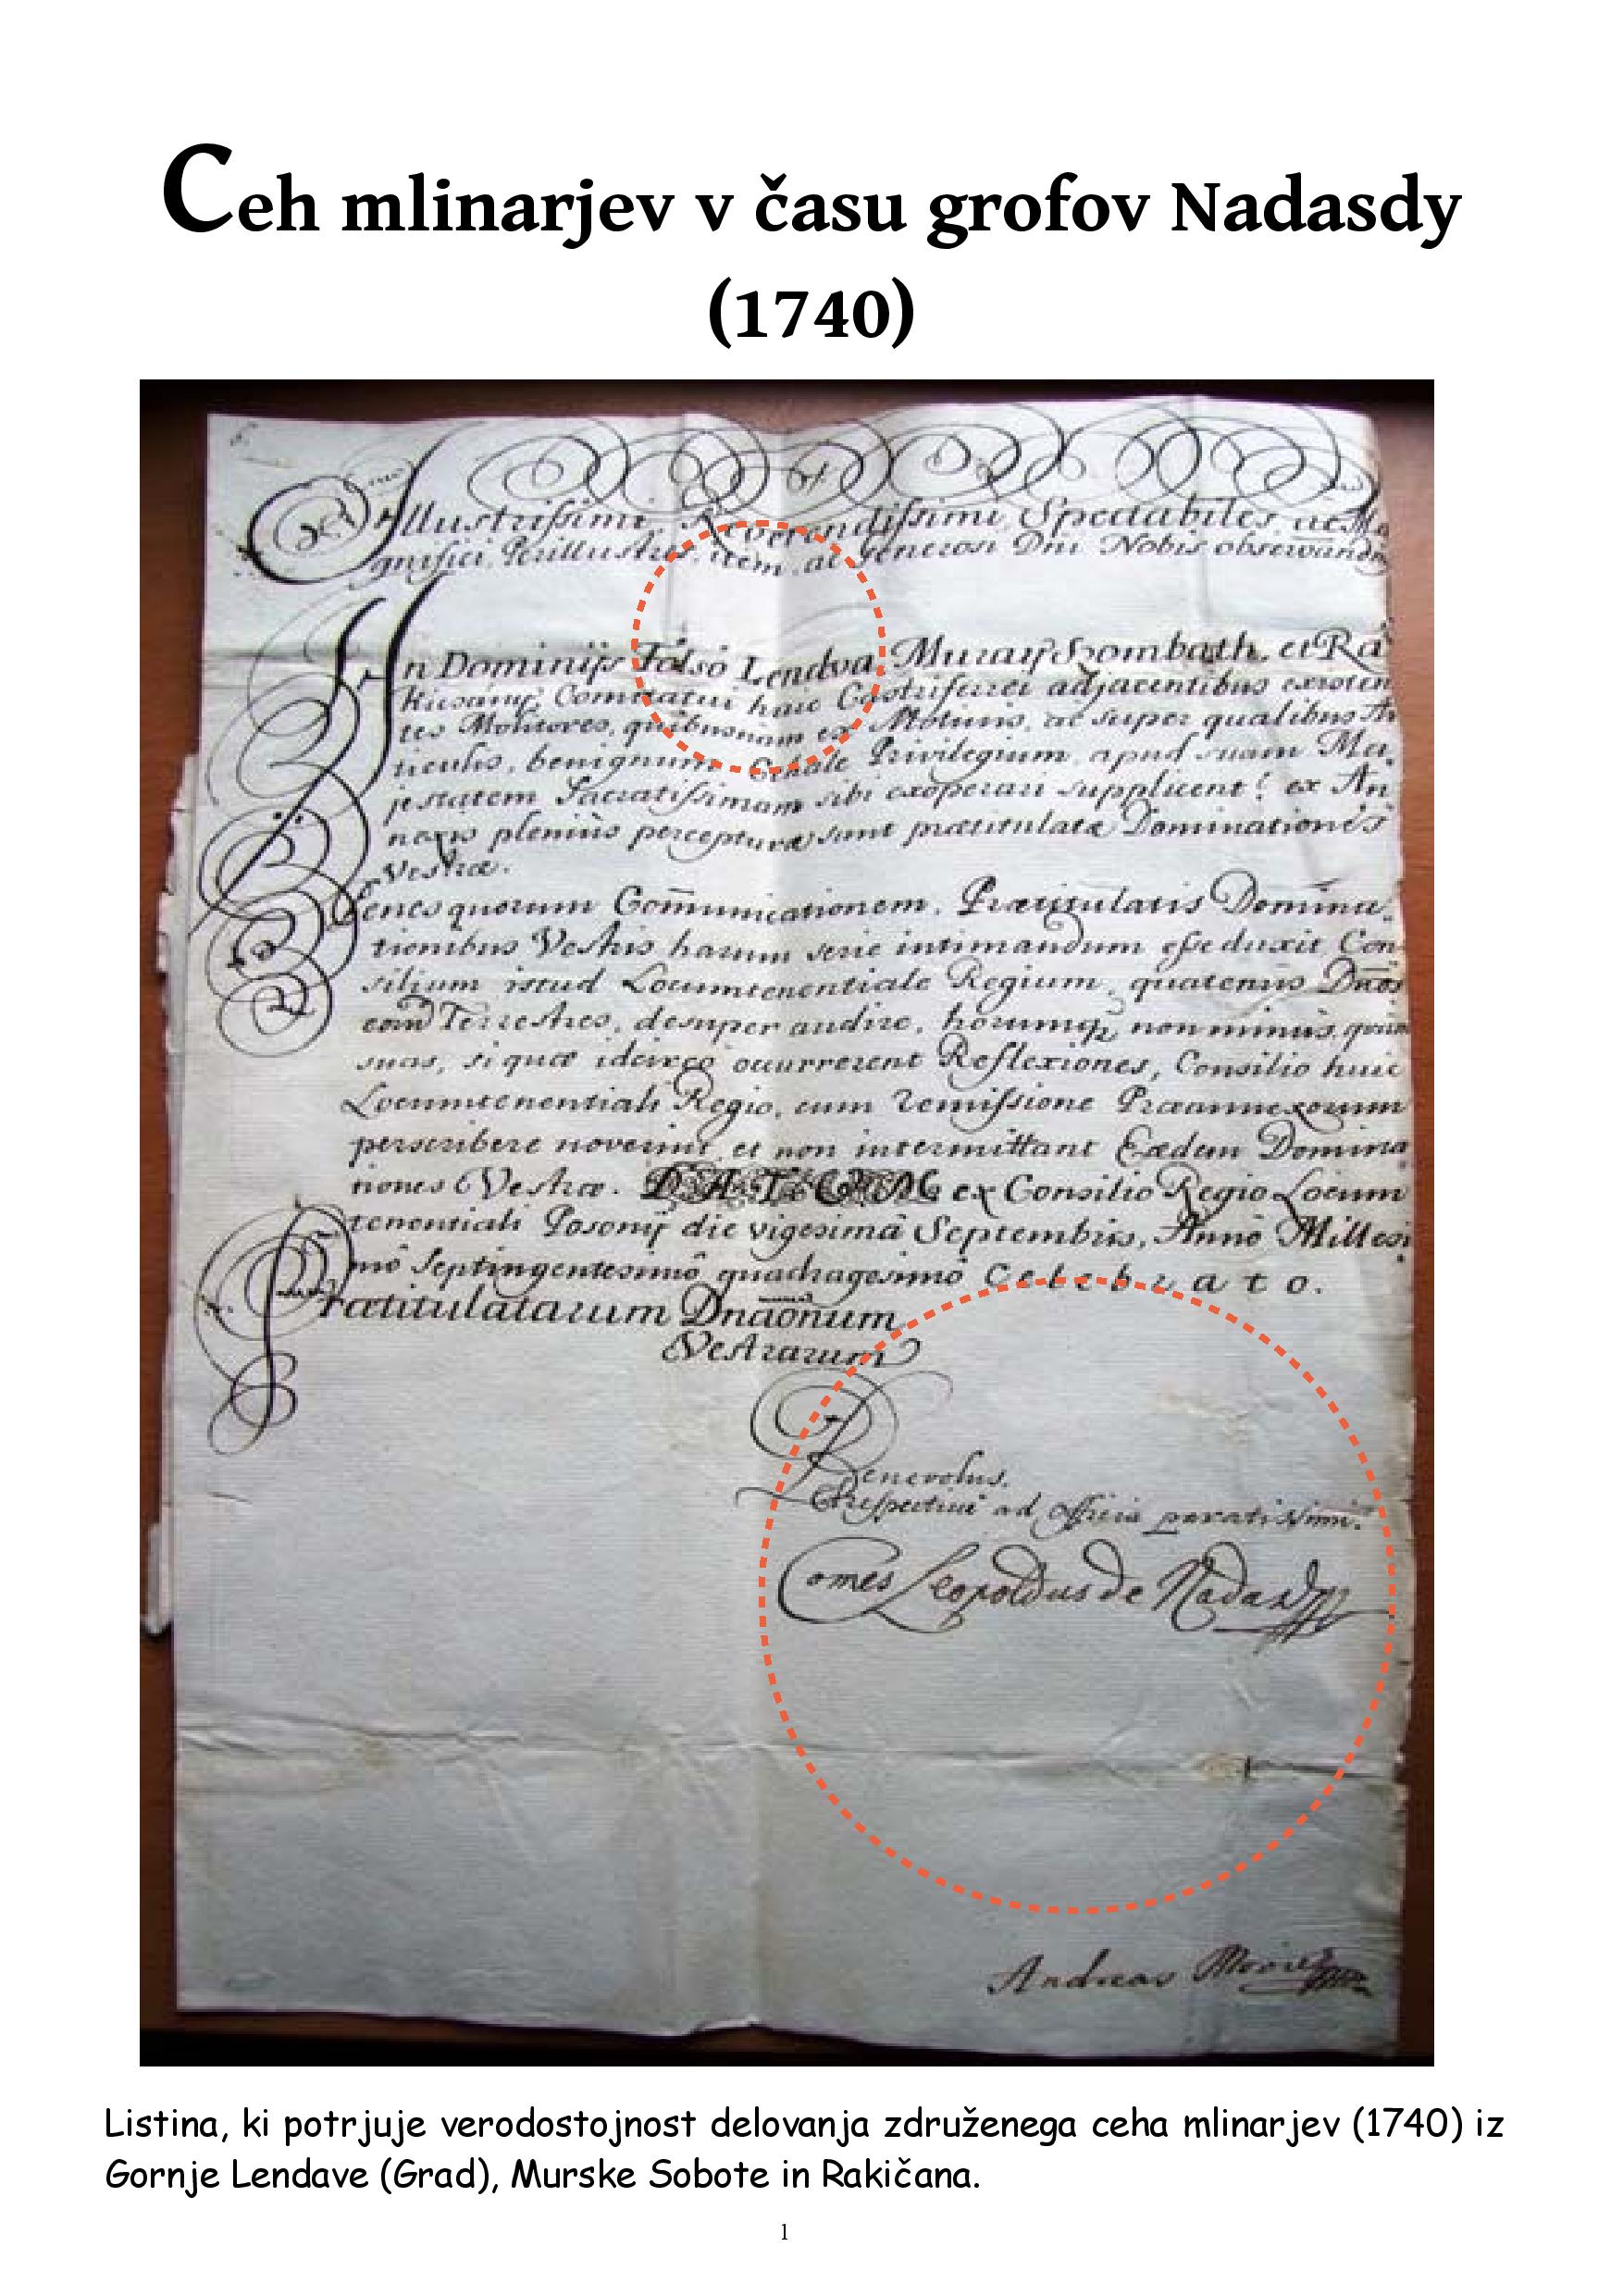 Ceh mlinarjev v času grofov Nadasdy
(1740)
Illustrissimi, Reverendissimi, Spectabiles, ac Ma
gnifici, Perillustres, item, ac Generosi Dni Nobis observandi
In Dominijs Fölsö Lendva, Muraÿ Szombath, et Ra
Comitatui huic Castriferrei adjacentibus existen
tes Molitores, quibusnam ex Motivis, ac super qualibus Ar
ticulis, benignum Cehale Privilegium, apud suam Ma
jestatem Sacratissimam sibi exoperari supplicent? ex An
nexis pleniùs perceptura sunt prætitulatæ Dominationes
Vestræ.
Penes quorum Com̃unicationem, Prætitulatis Domina
tionibus Vestris harum serie intimandum esse duxit Con
silium istud Locumtenentiale Regium, quatenus Dños
eom̄ Terrestres, desuper audire, horumq3 non minus, quàm
suas, si quæ idcirco occurrerent Reflexiones, Consilio huic
Locumtenentiali Regio, cum remissione Præannexorum
perscribere noverint, et non intermittant Eædem Domina
tiones Vestræ. DATUM ex Consilio Regio Locum
tenentiali Posonÿ die vigesimâ Septembris, Annô Millesi
mô Septingentesimô quadragesimô Celebrato.
Prætitulatarum Dnãonum
Vestrarum
Benevolus.
Et respective ad officia paratissimi.
Comes Leopoldus de Nadasdy
Andreas
Listina, ki potrjuje verodostojnost delovanja združenega ceha mlinarjev (1740) iz
Gornje Lendave (Grad), Murske Sobote in Rakičana.
1